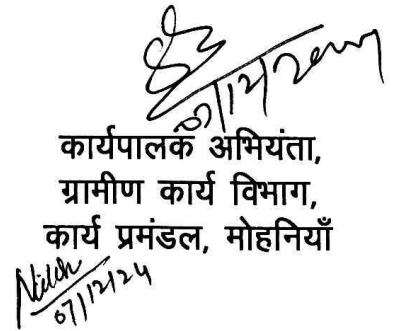 07/12/2024
कार्यपालक अभियंता,
ग्रामीण कार्य विभाग,
कार्य प्रमंडल, मोहनियाँ
07/12/24